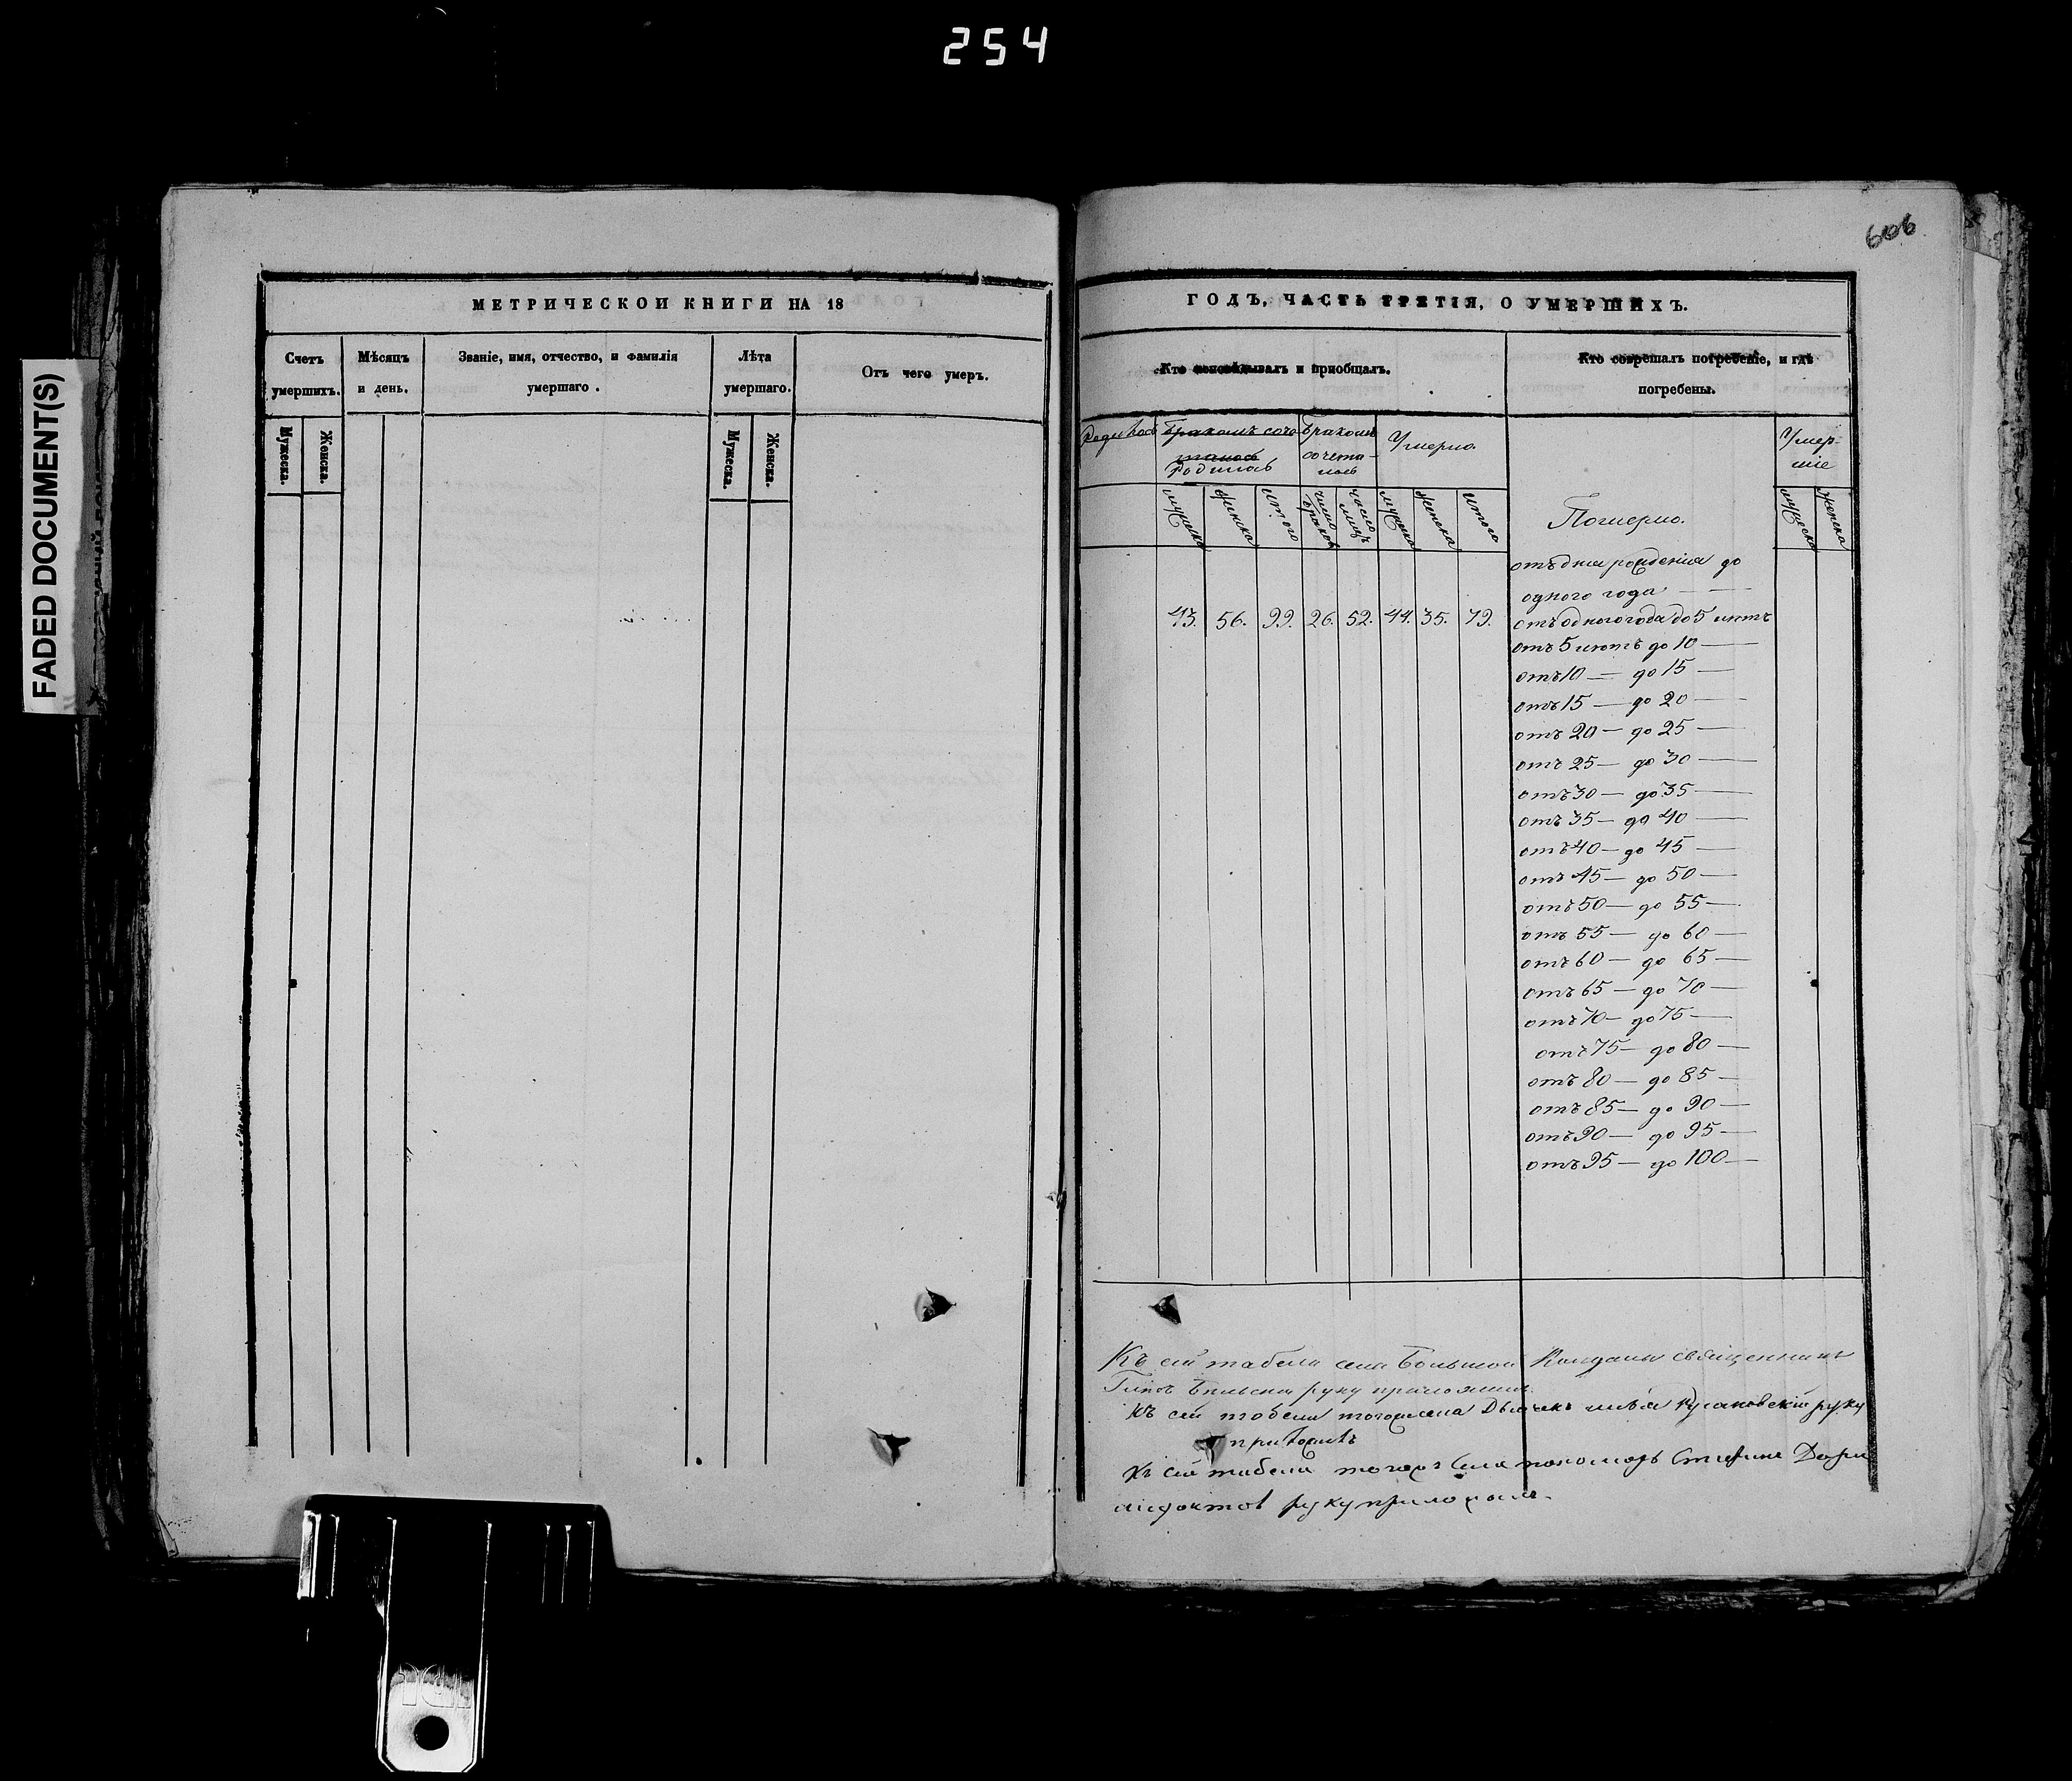 254
FADED DOCUMENT(S)
606
МЕТРИЧЕСКОИ КНИГИ НА 18
Счетъ умершихъ.
Мѣсяцъ и день.
Званіе, имя, отчество, и фамилія умершаго.
Лѣта умершаго.
Отъ чего умеръ.
Мужеска.
Женска.
Мужеска.
Женска.
ГОДЪ, ЧАСТЬ ТРЕТІЯ, О УМЕРШИХЪ.
Кто исповѣдывалъ и пріобщалъ.
Кто совершалъ погребеніе, и гдѣ погребены.
Родилось
Бракомъ соче
талось
Родилось
Бракомъ
сочета-
лось
Умерло.
Умер-
шіе
мужеска
женска
итого
число браковъ
число лицъ
мужеска
женска
итого
Померло.
мужеска
женска
отъ дня рожденія до
одного года
43. 56. 99. 26. 52. 44. 35. 79.
отъ одного года до 5 лѣтъ
отъ 5 лѣтъ до 10 —
отъ 10 — до 15 —
отъ 15 — до 20 —
отъ 20 — до 25 —
отъ 25 — до 30 —
отъ 30 — до 35 —
отъ 35 — до 40 —
отъ 40 — до 45 —
отъ 45 — до 50 —
отъ 50 — до 55 —
отъ 55 — до 60 —
отъ 60 — до 65 —
отъ 65 — до 70 —
отъ 70 — до 75 —
отъ 75 — до 80 —
отъ 80 — до 85 —
отъ 85 — до 90 —
отъ 90 — до 95 —
отъ 95 — до 100 —
Къ сей табели села Большой священникъ
руку приложилъ
Къ сей табели тогожъ села руку
приложилъ
Къ сей табели тогожъ села пономарь
руку приложилъ.